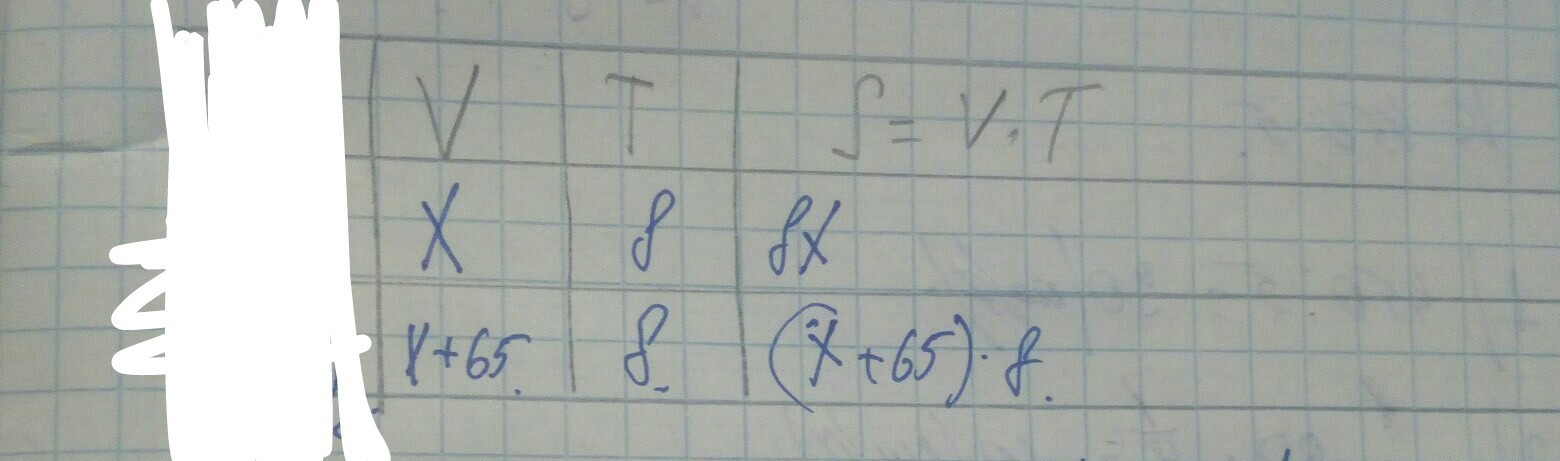 V T S = V · T
X 8 8X
X+65. 8. (X+65)·8.